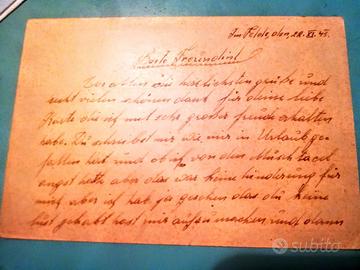 Im Felde, den, 22. XI. 43.
Beste Freundin!
Vor allen die herzlichsten grüße und
recht vielen schönen dank für deine liebe
Karte die ich mit sehr großer freude erhalten
habe. Du schreibst wie mir in Urlaub ge-
fallen hat und ob ich von den
angst hatte aber das war keine hinderung für
mich aber ich hab ja gesehen das du keine
lust gehabt hast mir aufzumachen und dann
subito